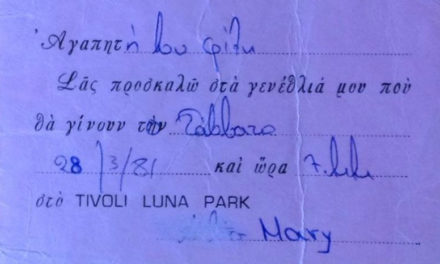 Ἀγαπητή μου φίλη
Σᾶς προσκαλῶ στὰ γενέθλιά μου ποὺ
θὰ γίνουν τὸ Σάββατο
28/3/81 καὶ ὥρα 7 μ.μ.
στὸ TIVOLI LUNA PARK
Mary